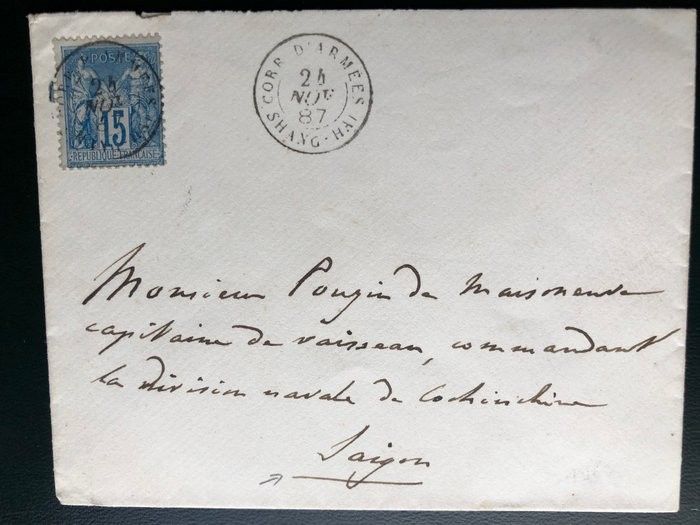 POSTES
24
NOV
15
REPUBLIQUE FRANCAISE
CORR. D'ARMÉES
24
NOV
87
SHANG-HAI
Monsieur Pougin de Maisoneuve
capitaine de vaisseau, commandant
la division navale de Cochinchine
Saigon